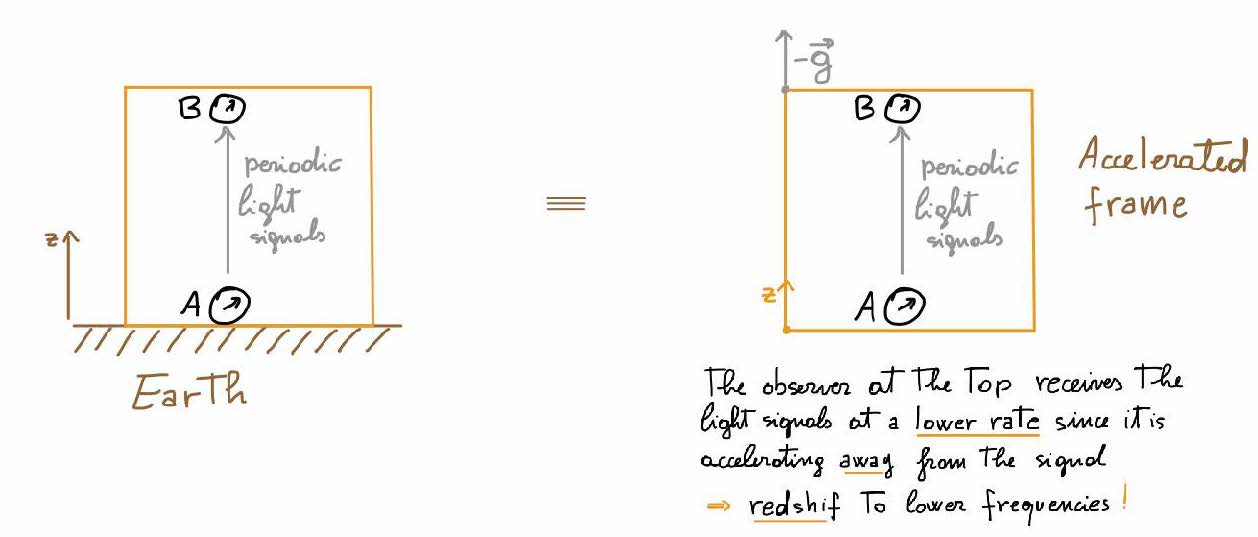 B
periodic
light
signals
z
A
Earth
≡
-g⃗
B
periodic
light
signals
z
A
Accelerated
frame
The observer at the Top receives the
light signals at a lower rate since it is
accelerating away from the signal
⇒ redshif To lower frequencies!